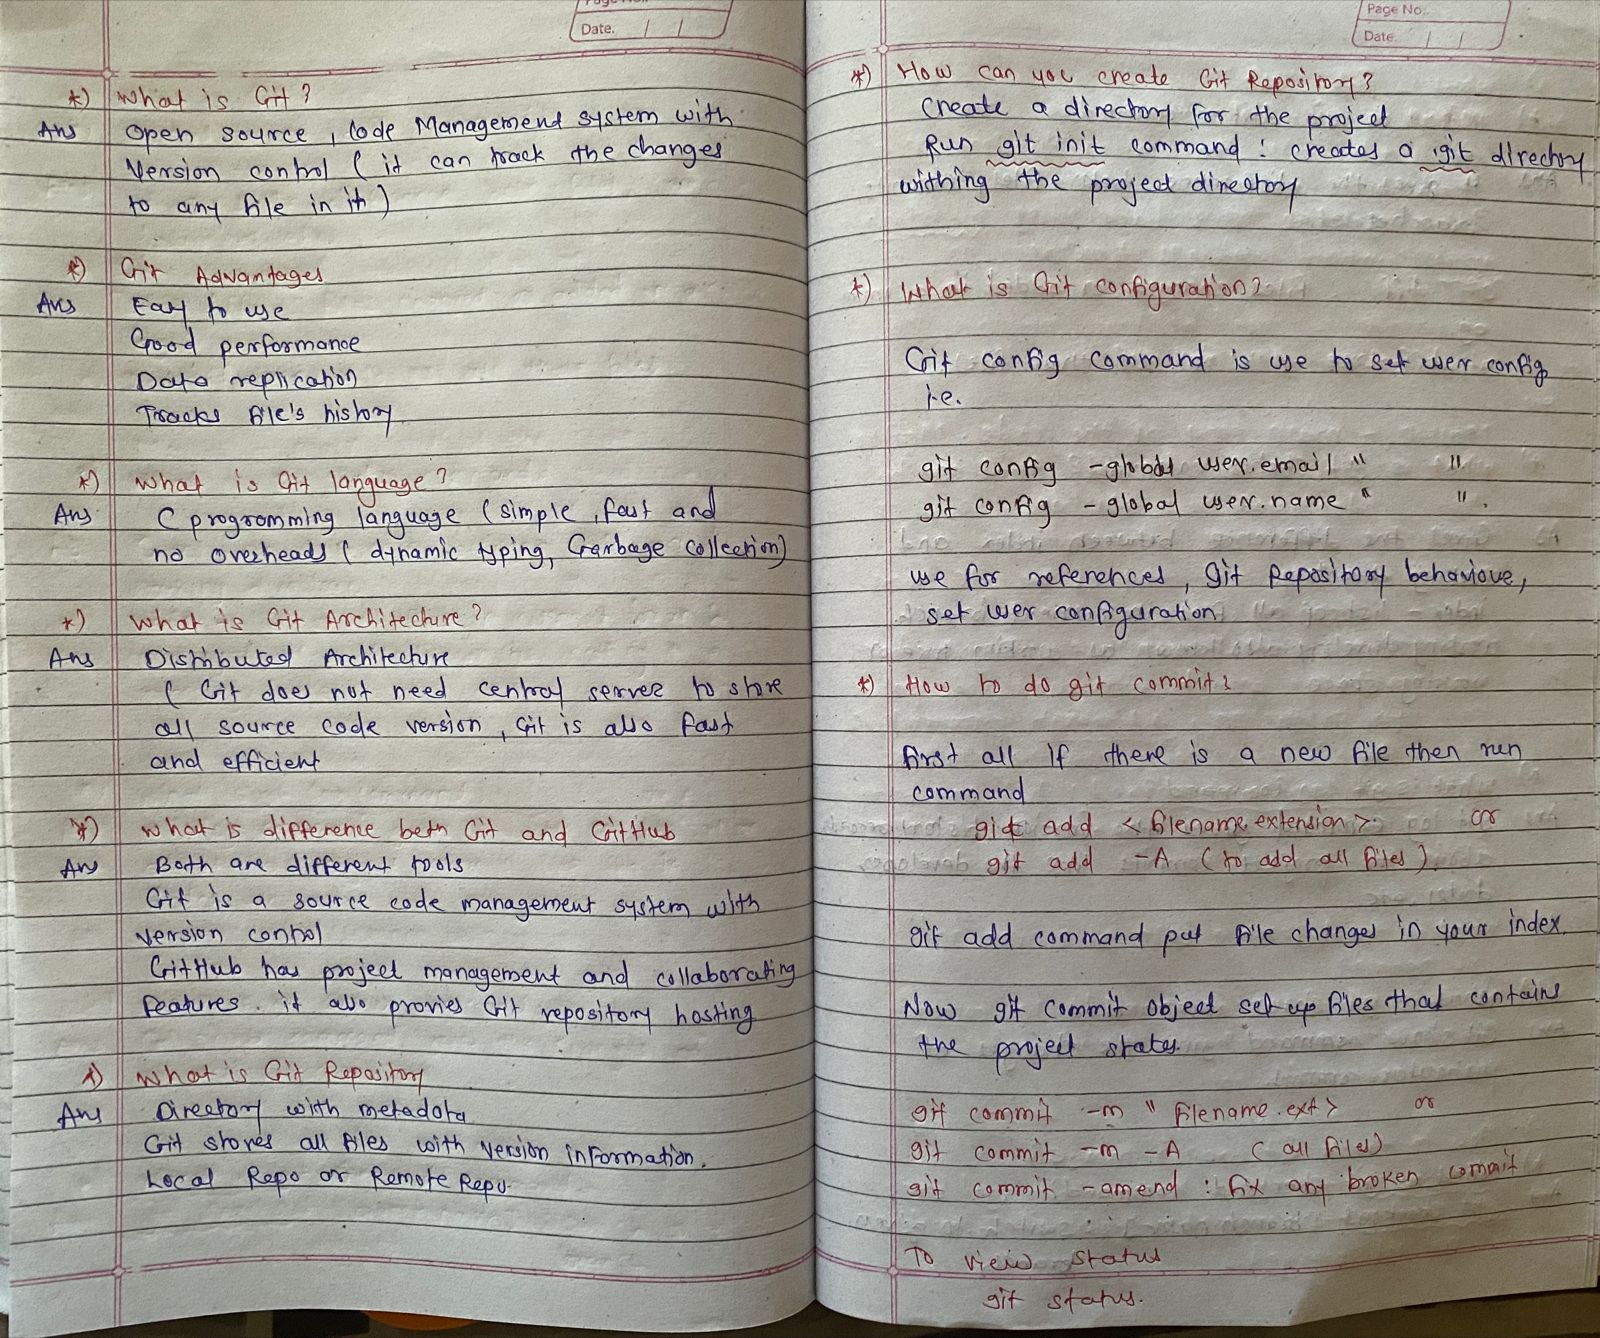 Date.
*) What is Git?
Ans Open source, Code Management system with
Version control ( it can track the changes
to any file in it )
*) Git Advantages
Ans Easy to use
Good performance
Data replication
Tracks file's history
*) What is Git language?
Ans C programming language (simple, fast and
no overheads ( dynamic typing, Garbage collection)
*) What is Git Architecture?
Ans Distributed Architecture
( Git does not need central server to store
all source code version, Git is also fast
and efficient
*) What is difference betn Git and GitHub
Ans Both are different tools
Git is a source code management system with
version control
GitHub has project management and collaborating
features. it also provies Git repository hosting
*) What is Git Repository
Ans Directory with metadata
Git stores all files with version information.
Local Repo or Remote Repo.
Page No.
Date.
*) How can you create Git Repository?
Create a directory for the project
Run git init command : creates a .git directory
withing the project directory
*) What is Git configuration?
Git config command is use to set user config
i.e.
git config -global user.email " "
git config -global user.name " ".
use for references, git Repository behaviove,
set user configuration
*) How to do git commit?
first all if there is a new file then run
command
git add < filename.extension > or
git add -A (to add all files)
git add command put file changes in your index.
Now git commit object set up files that contains
the project states.
git commit -m " filename.ext > or
git commit -m -A ( all files)
git commit -amend : fix any broken commit
To view status
git status.